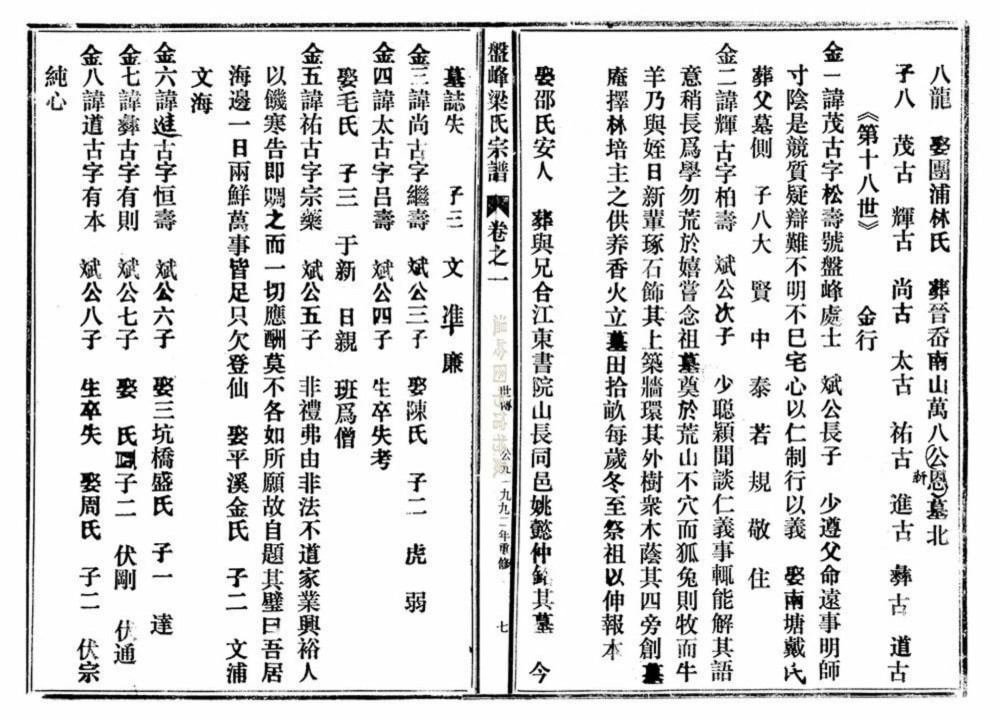 八龍 娶團浦林氏 葬晉岙南山萬八公恩墓北
新
子八 茂古 輝古 尚古 太古 祐古 進古 彝古 道古
《第十八世》 金行
金一諱茂古字松壽號盤峰處士 斌公長子 少遵父命遠事明師
寸陰是競質疑辯難不明不已宅心以仁制行以義 娶南塘戴氏
葬父墓側 子八大 賢 中 泰 若 規 敬 住
金二諱輝古字柏壽 斌公次子 少聰穎聞談仁義事輒能解其語
意稍長爲學勿荒於嬉嘗念祖墓奠於荒山不穴而狐兔則牧而牛
羊乃與姪日新輩琢石飾其上築牆環其外樹衆木蔭其四旁創墓
庵擇林培主之供养香火立墓田拾畝每歲冬至祭祖以伸報本
娶邵氏安人 葬與兄合江東書院山長同邑姚懿仲銘其墓 今
盤峰梁氏宗譜 卷之一 世傳 公元一九九二年重修 七
墓誌失 子三 文 准 廉
金三諱尚古字繼壽 斌公三子 娶陳氏 子二 虎 弱
金四諱太古字呂壽 斌公四子 生卒失考
娶毛氏 子三 于新 日親 班爲僧
金五諱祐古字宗藥 斌公五子 非禮弗由非法不道家業興裕人
以饑寒告即賙之而一切應酬莫不各如所願故自題其壁曰吾居
海邊一日兩鮮萬事皆足只欠登仙 娶平溪金氏 子二 文浦
文海
金六諱進古字恒壽 斌公六子 娶三坑橋盛氏 子一 達
金七諱彝古字有則 斌公七子 娶 氏 子二 伏剛 伏通
金八諱道古字有本 斌公八子 生卒失 娶周氏 子二 伏宗
純心